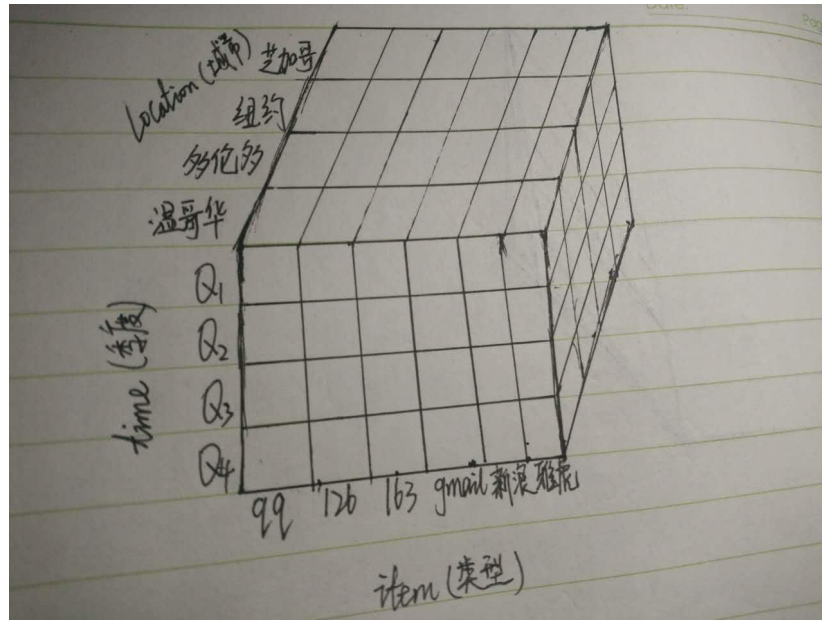 Date:
Location (城市)
芝加哥
纽约
多伦多
温哥华
time (季度)
Q1
Q2
Q3
Q4
qq 126 163 gmail 新浪 雅虎
item (类型)